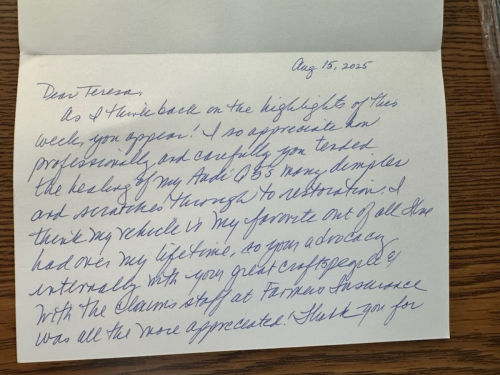 Aug 15, 2025
Dear Teresa,
As I think back on the highlights of this
week, you appear! I so appreciate how
professionally and carefully you tended
the healing of my Audi Q5's many dimples
and scratches through to restoration. I
think my vehicle is my favorite out of all I've
had over my lifetime, so your advocacy
internally with your great craftspeople &
with the Claims staff at Farmers Insurance
was all the more appreciated! Thank you for